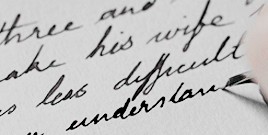 three and
ake his wife
s less difficult
understan